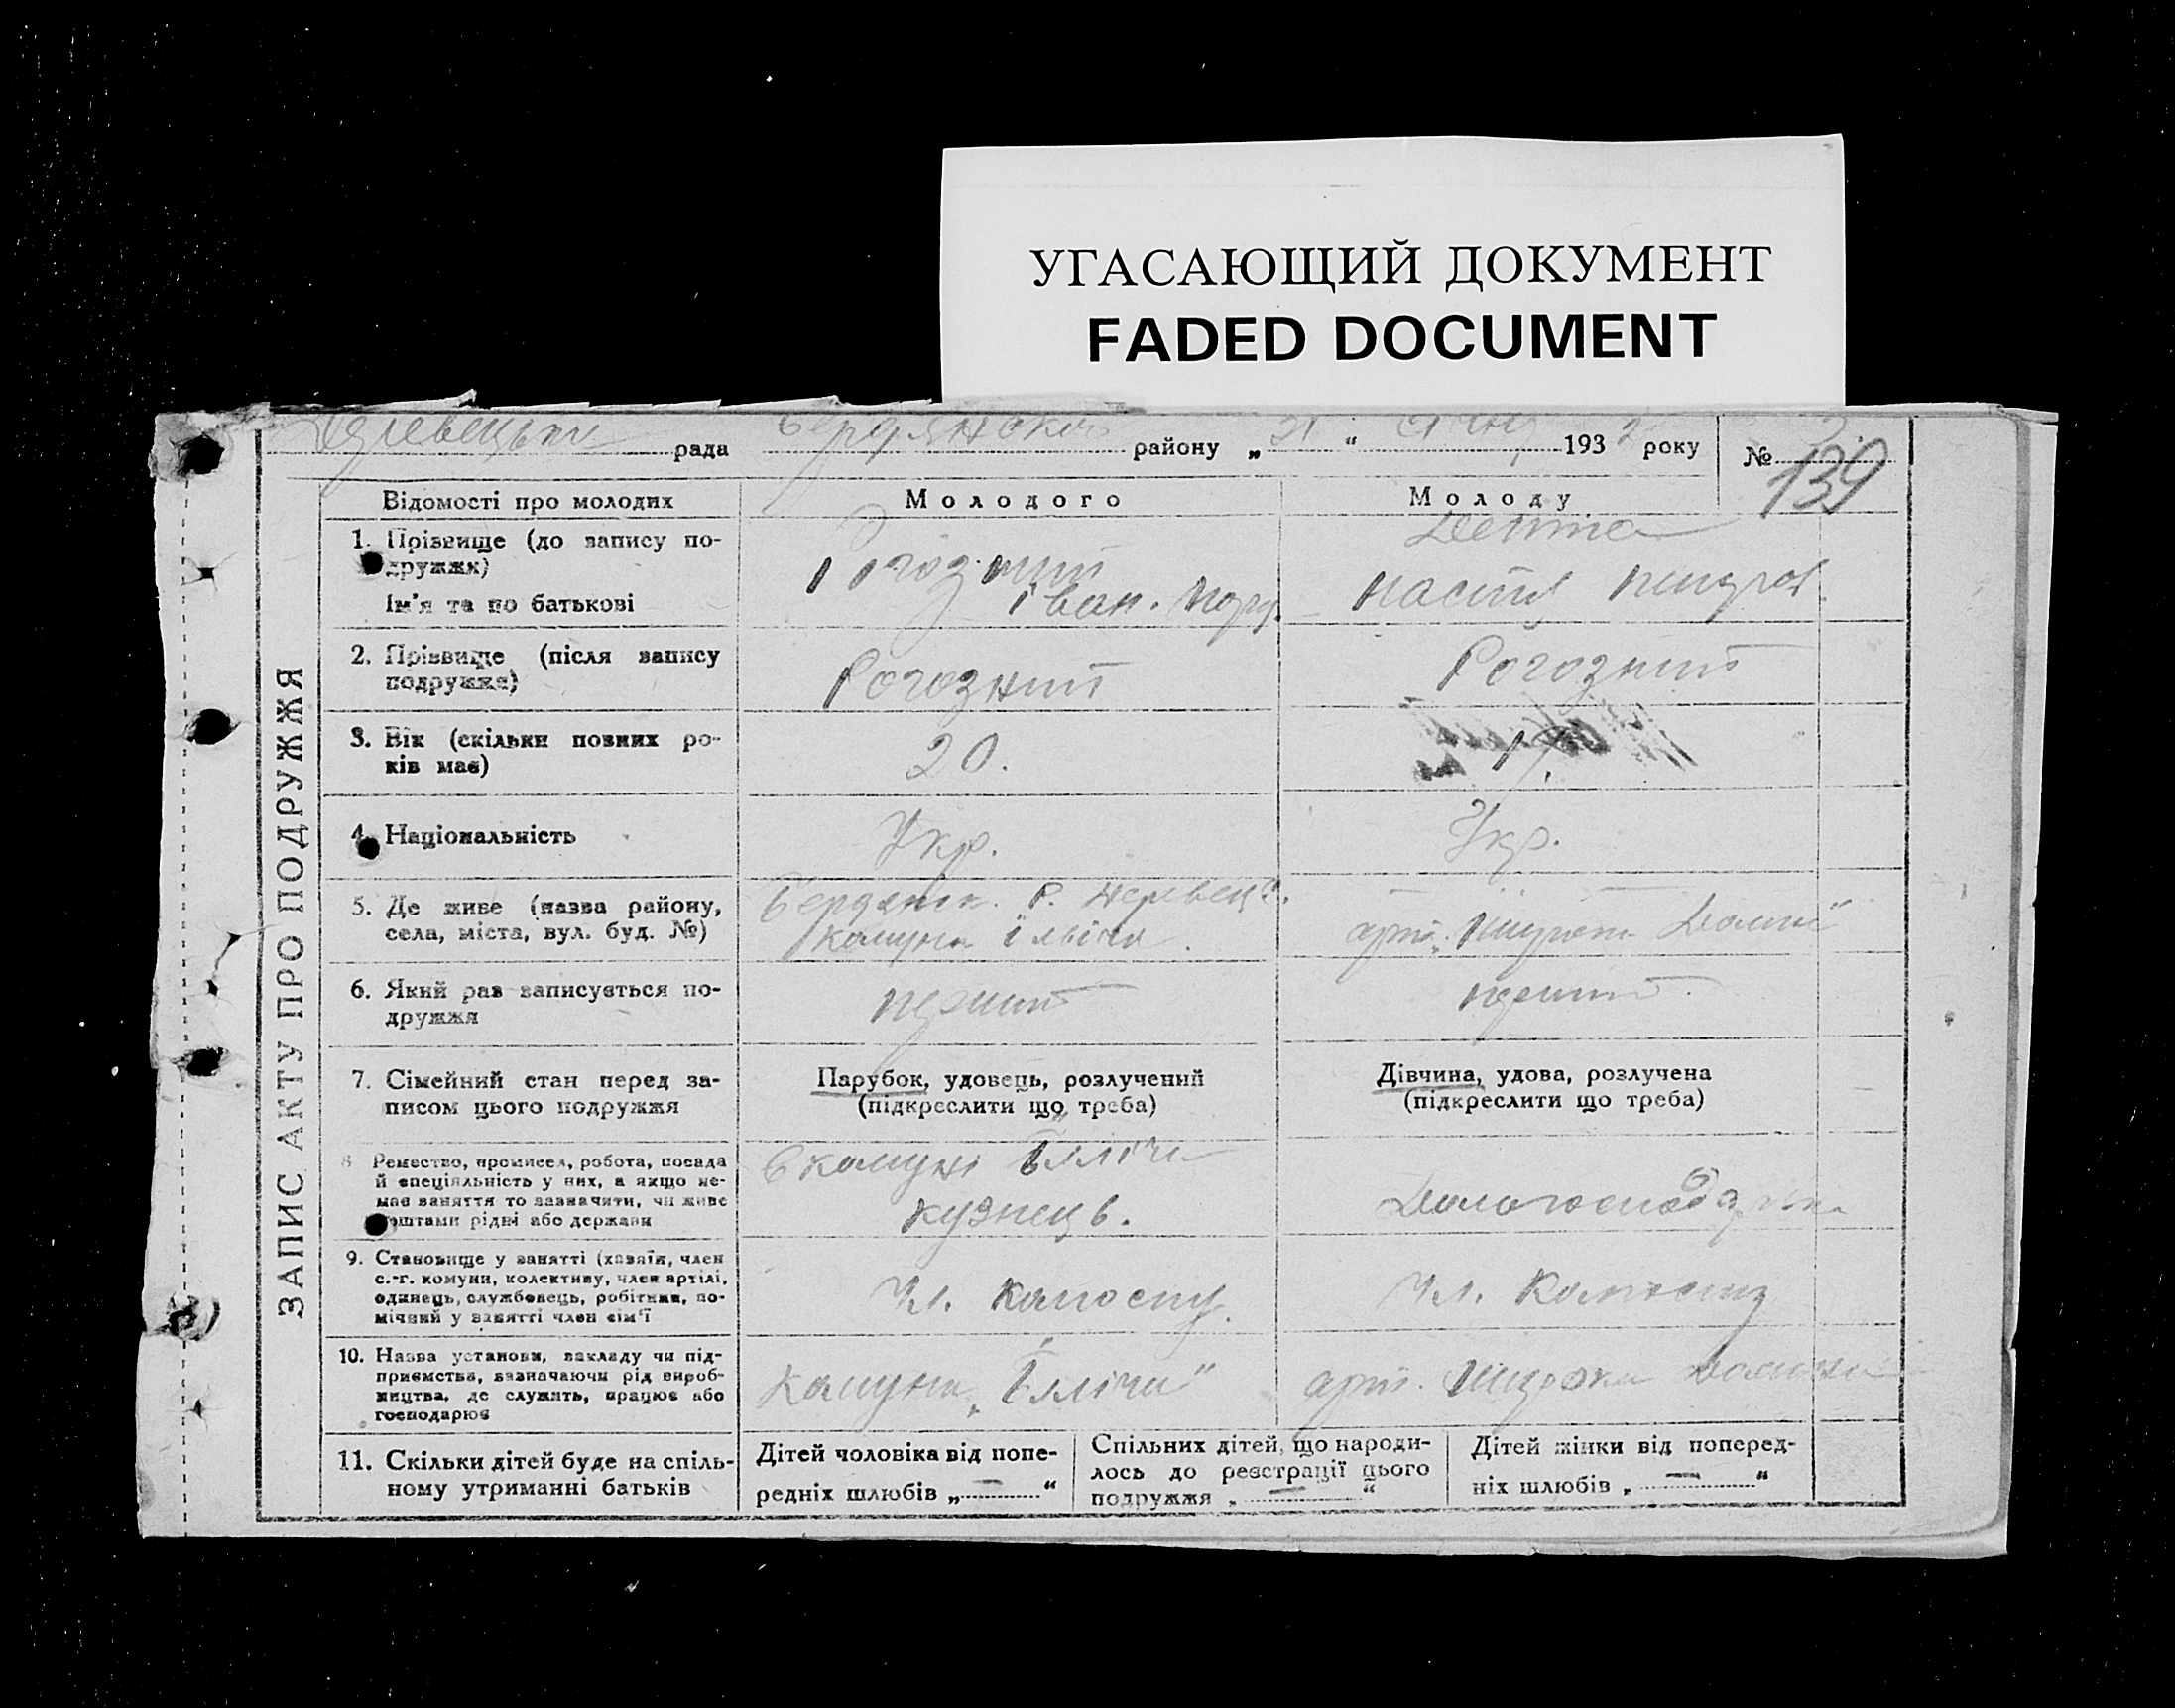 УГАСАЮЩИЙ ДОКУМЕНТ
FADED DOCUMENT
рада Бердянског району „ 21 “ 193 2 року № 3
139
ЗАПИС АКТУ ПРО ПОДРУЖЖЯ
Відомості про молодих Молодого Молоду
1. Прізвище (до запису по-
дружжя)
Ім'я та по батькові
Рогозний
Іван.
Настя
2. Прізвище (після запису
подружжя)
Рогозний
Рогозний
3. Вік (скільки повних ро-
ків має)
20.
4. Національність
Укр.
Укр.
5. Де живе (назва району,
села, міста, вул. буд. №)
Бердянск. Р.
комуна
арт.
6. Який раз записується по-
дружжя
перший
перший
7. Сімейний стан перед за-
писом цього подружжя
Парубок, удовець, розлучений
(підкреслити що треба)
Дівчина, удова, розлучена
(підкреслити що треба)
8 Ремество, промисел, робота, посада
й спеціяльність у них, а якщо не-
має заняття то зазначити, чи живе
коштами рідні або держави
в комуні Ілліча
кузнець.
9. Становище у занятті (хазяїн, член
с.-г. комуни, колективу, член артілі,
одинець, службовець, робітник, по-
мічний у занятті член сім'ї
Чл. колгоспу.
Чл. колгоспу
10. Назва установи, закладу чи під-
приємства, зазначаючи рід вироб-
ництва, де служить, працює або
господарює
Комуна „Ілліча"
арт. Широка
11. Скільки дітей буде на спіль-
ному утриманні батьків
Дітей чоловіка від попе-
редніх шлюбів „ — “
Спільних дітей, що народи-
лось до реєстрації цього
подружжя „ — “
Дітей жінки від поперед-
ніх шлюбів „ — “